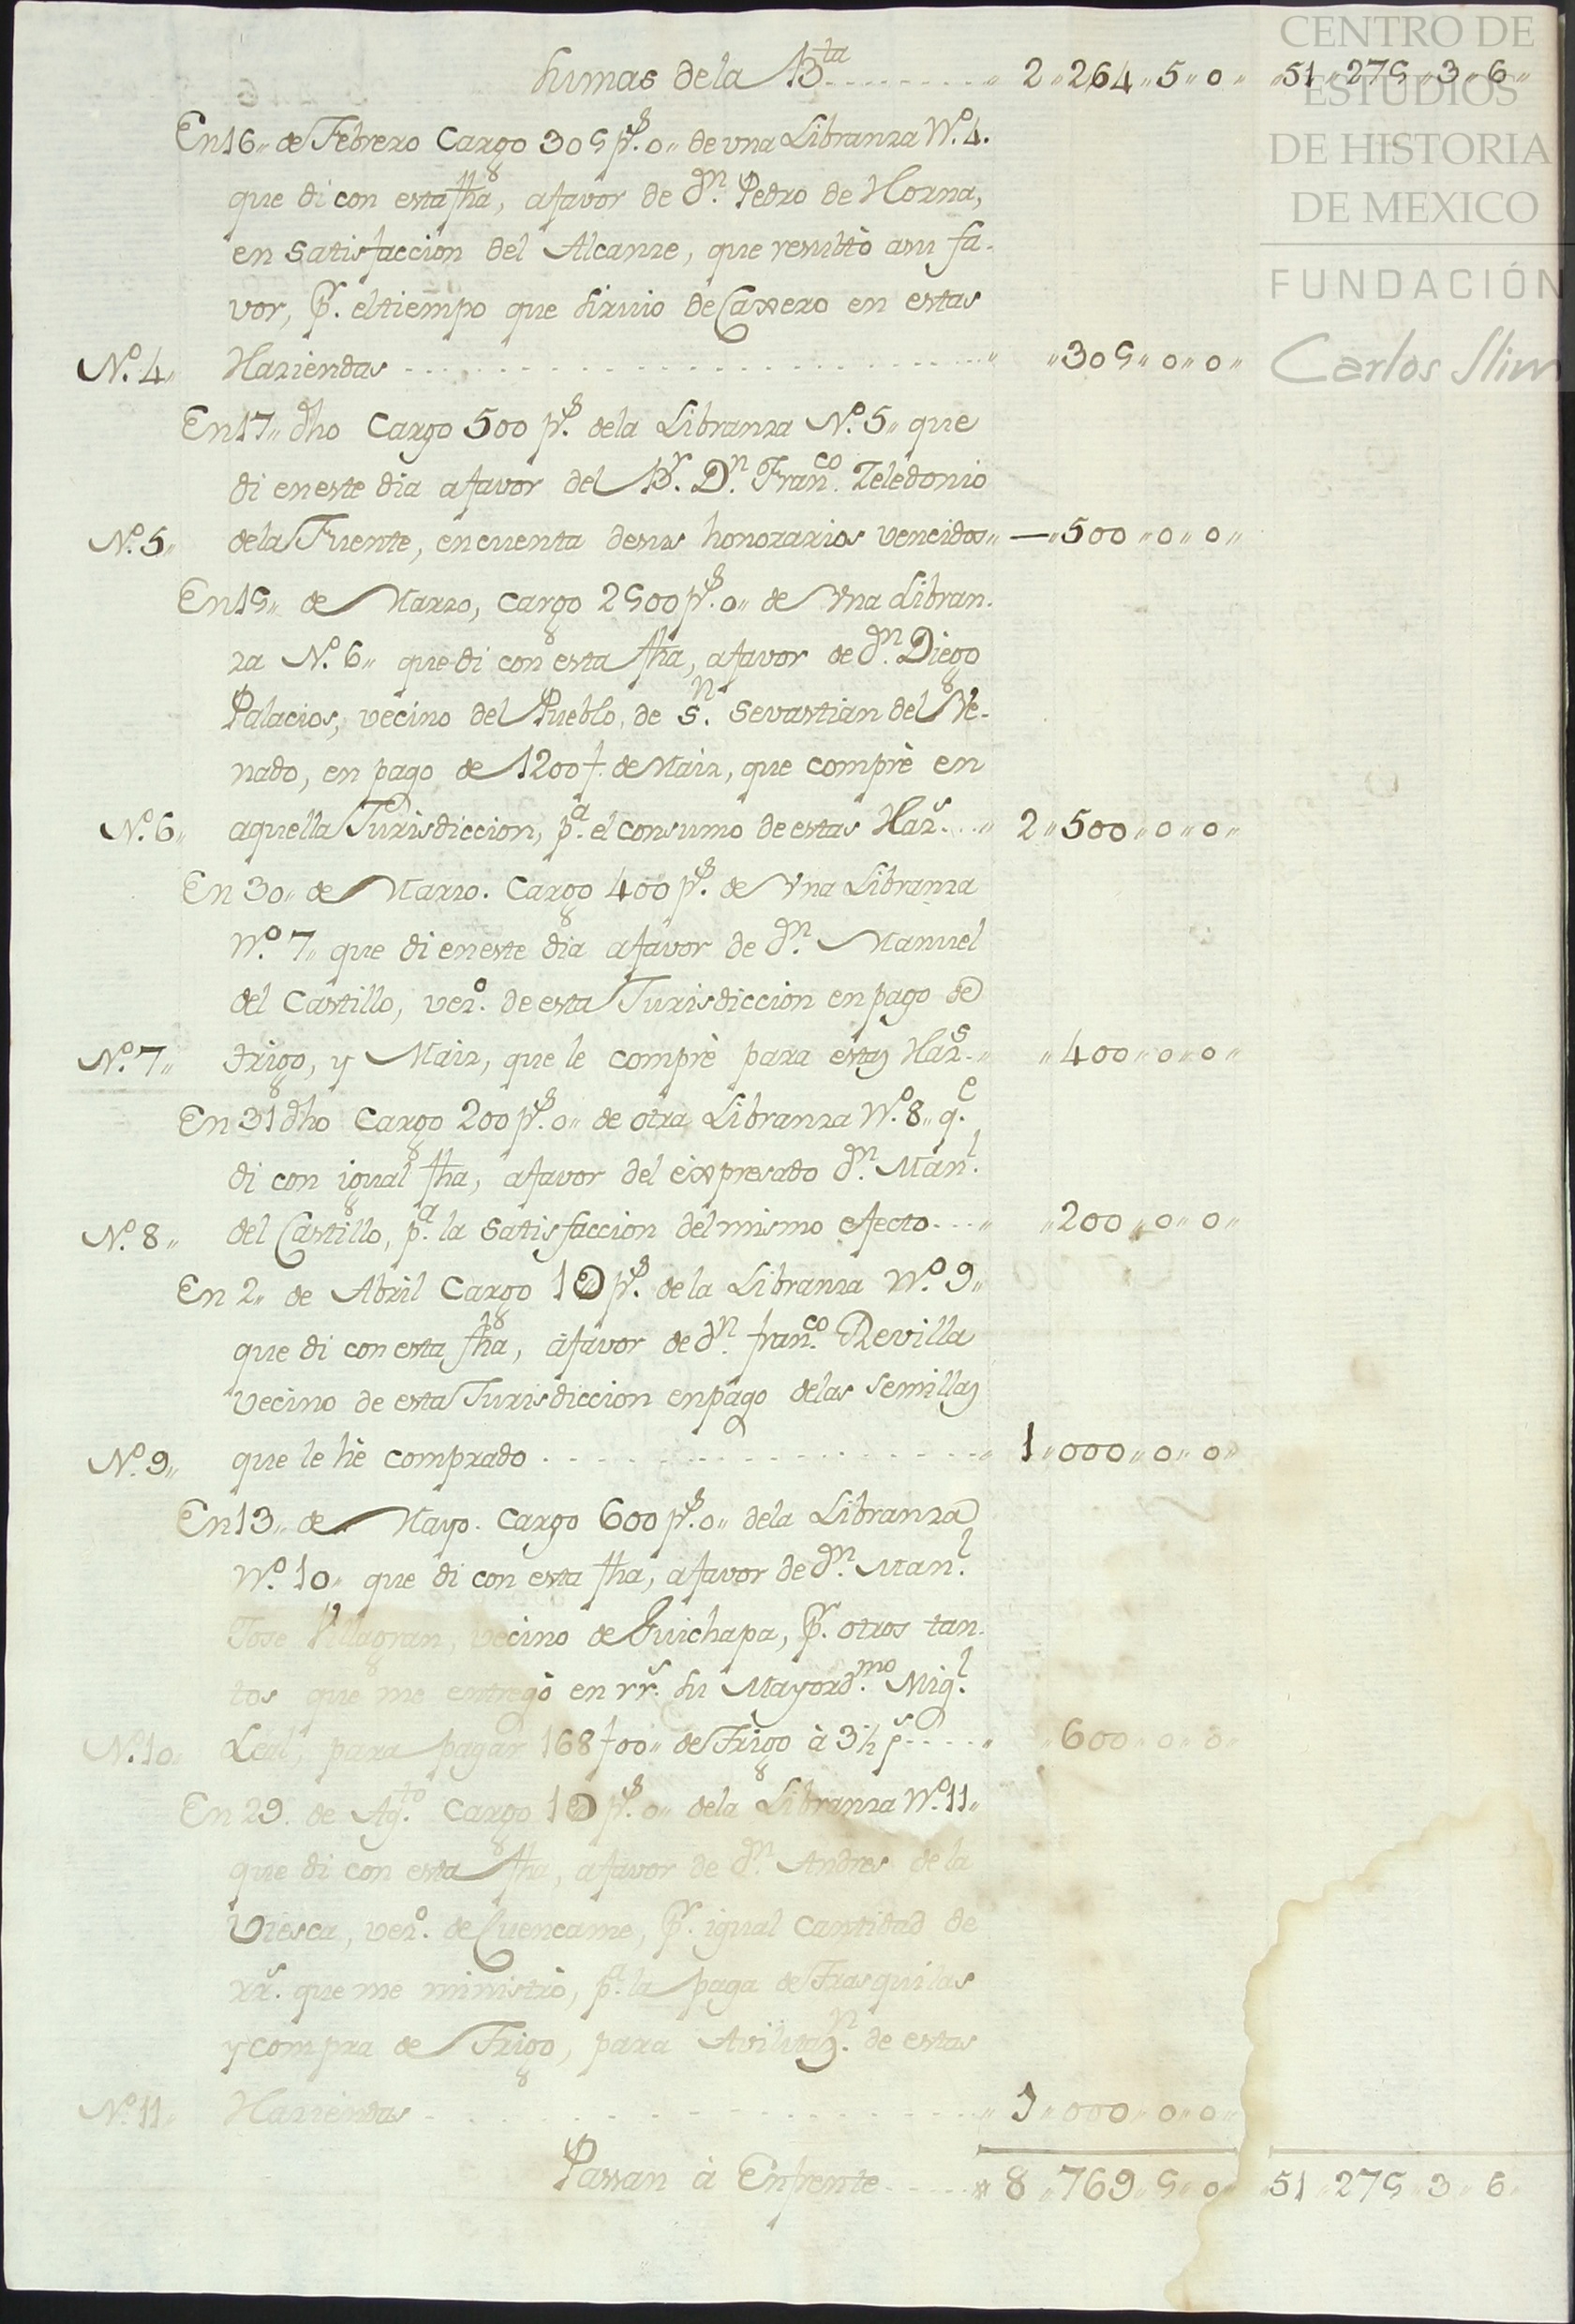 Sumas de la B.ta " 2"264"5"0" "51"275"3"6"
En 16" de Febrero Cargo 305 p.s 0" de vna Libranza N.o 4.
que di con esta fha, afavor de d.n Pedro de Horna,
en satisfaccion del Alcanze, que resultò asu fa-
vor, p.r el tiempo que sirvio de Caxero en estas
N.o 4" Haziendas " "305"0"0"
En 17" dho Cargo 500 p.s dela Libranza N.o 5" que
di en este dia afavor del B.r D.n Fran.co Zeledonio
N.o 5" dela Fuente, en cuenta desus honorarios vencidos" — "500"0"0"
En 15" de Marzo, cargo 2500 p.s 0" de Vna Libran-
za N.o 6" que di con esta fha, afavor de d.n Diego
Palacios, vecino del Pueblo, de S.n Sevastian del Ve-
nado, en pago de 1200 f. de Maiz, que comprè en
N.o 6" aquella Jurisdiccion, p.a el consumo de estas Haz.s " 2"500"0"0"
En 30" de Marzo. Cargo 400 p.s de Vna Libranza
N.o 7" que di en este dia afavor de d.n Manuel
del Castillo, vez.o de esta Jurisdiccion en pago de
N.o 7" trigo, y Maiz, que le comprè para estas Haz.s " "400"0"0"
En 31 dho Cargo 200 p.s 0" de otra Libranza N.o 8" q.e
di con igual fha, afavor del expresado d.n Man.l
N.o 8" del Castillo, p.a la satisfaccion del mismo efecto " "200"0"0"
En 2" de Abril Cargo 1Ð p.s de la Libranza N.o 9"
que di con esta fha, afavor de d.n fran.co Revilla
vecino de esta Jurisdiccion en pago delas semillas
N.o 9" que le hè comprado " 1"000"0"0"
En 13" de Mayo. Cargo 600 p.s 0" dela Libranza
N.o 10" que di con esta fha, afavor de d.n Man.l
Jose Villagran, vecino de Guichapa, p.r otros tan-
tos que me entregò en rr.s su Mayord.mo Mig.l
N.o 10 Leal, para pagar 168 f 00" de Trigo à 3½ p.s " "600"0"0"
En 29. de Ag.to Cargo 1Ð p.s 0" dela Libranza N.o 11"
que di con esta fha, afavor de d.n Andres de la
Viesca, vez.o de Cuencame, p.r igual cantidad de
rr.s que me ministrò, p.a la paga de Trasquilas
y compra de Trigo, para Avilitaz.n de estas
N.o 11" Haziendas " 1"000"0"0"
Passan à Enfrente 8"769"5"0" "51"275"3"6"
CENTRO DE
ESTUDIOS
DE HISTORIA
DE MEXICO
FUNDACIÓN
Carlos Slim